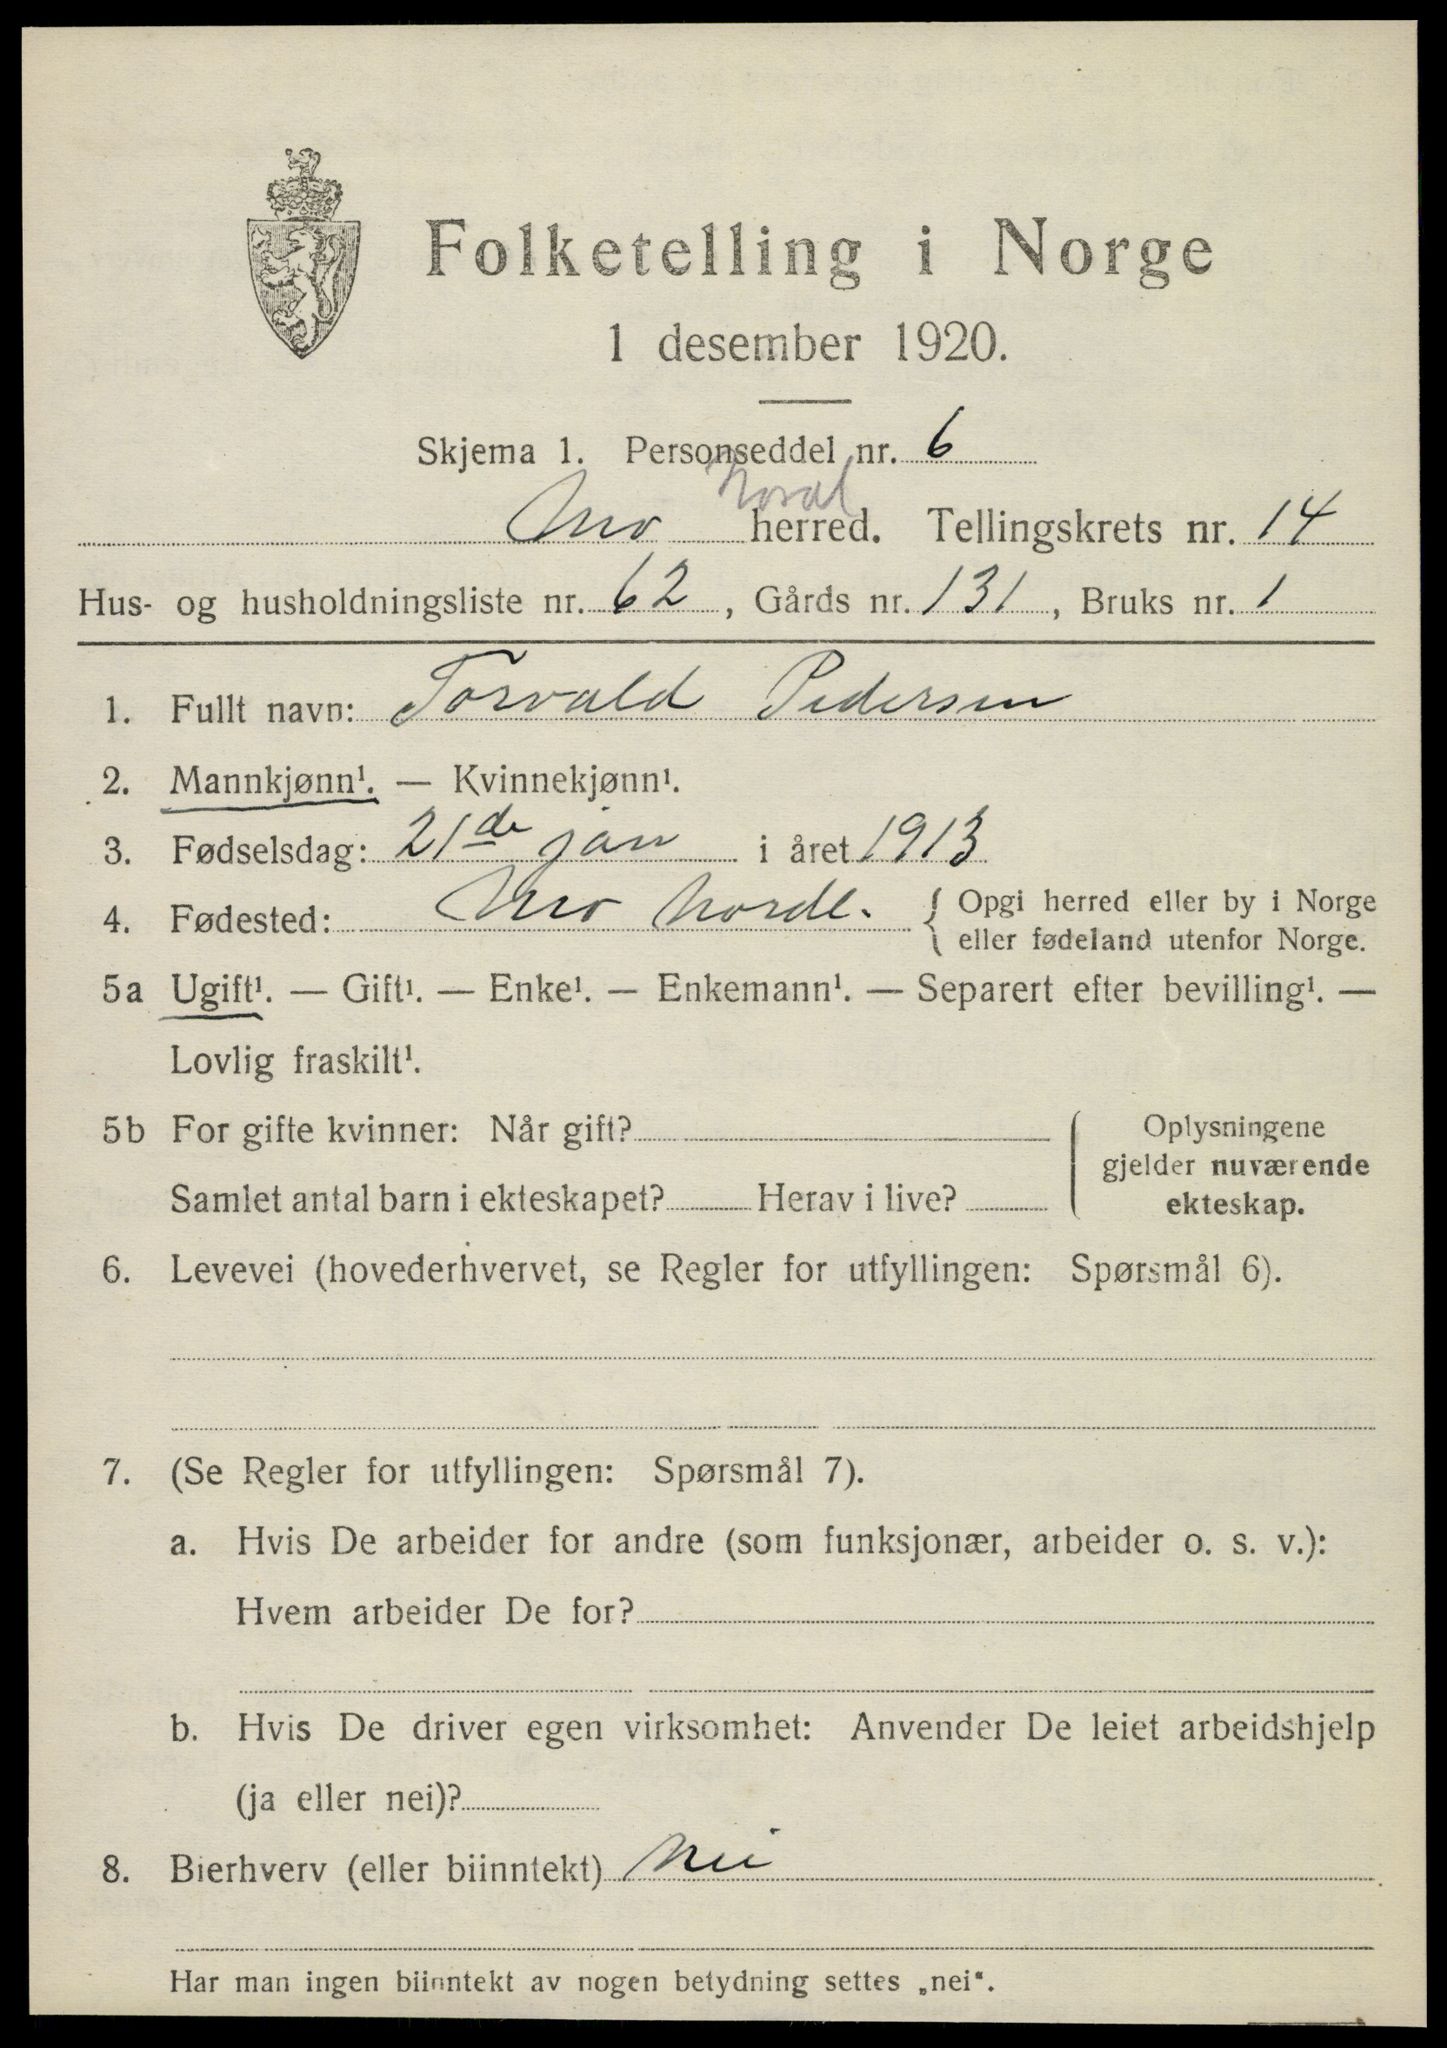 Folketelling i Norge
1 desember 1920.
Skjema 1. Personseddel nr. 6
Nordl
Mo herred. Tellingskrets nr. 14
Hus- og husholdningsliste nr. 62, Gårds nr. 131, Bruks nr. 1
1. Fullt navn: Torvald Pedersen
2. Mannkjønn¹. — Kvinnekjønn¹.
3. Fødselsdag: 21de jan i året 1913
4. Fødested: Mo Nordl. { Opgi herred eller by i Norge
eller fødeland utenfor Norge.
5a Ugift¹. — Gift¹. — Enke¹. — Enkemann¹. — Separert efter bevilling¹. —
Lovlig fraskilt¹.
5b For gifte kvinner: Når gift?
Samlet antal barn i ekteskapet? Herav i live?
Oplysningene
gjelder nuværende
ekteskap.
6. Levevei (hovederhvervet, se Regler for utfyllingen: Spørsmål 6).
7. (Se Regler for utfyllingen: Spørsmål 7).
a. Hvis De arbeider for andre (som funksjonær, arbeider o. s. v.):
Hvem arbeider De for?
b. Hvis De driver egen virksomhet: Anvender De leiet arbeidshjelp
(ja eller nei)?
8. Bierhverv (eller biinntekt) Nei
Har man ingen biinntekt av nogen betydning settes „nei".